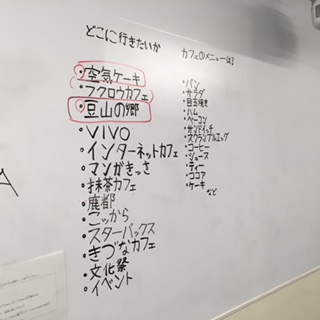 どこに行きたいか
・空気ケーキ
・フクロウカフェ
・豆山の郷
・VIVO
・インターネットカフェ
・マンガきっさ
・抹茶カフェ
・鹿都
・こっから
・スターバックス
・きづなカフェ
・文化祭
・イベント
カフェのメニューは?
・パン
・サラダ
・目玉焼き
・ハム
・ベーコン
・サンドイッチ
・スクランブルエッグ
・コーヒー
・ジュース
・ティー
・ココア
・ケーキ
など